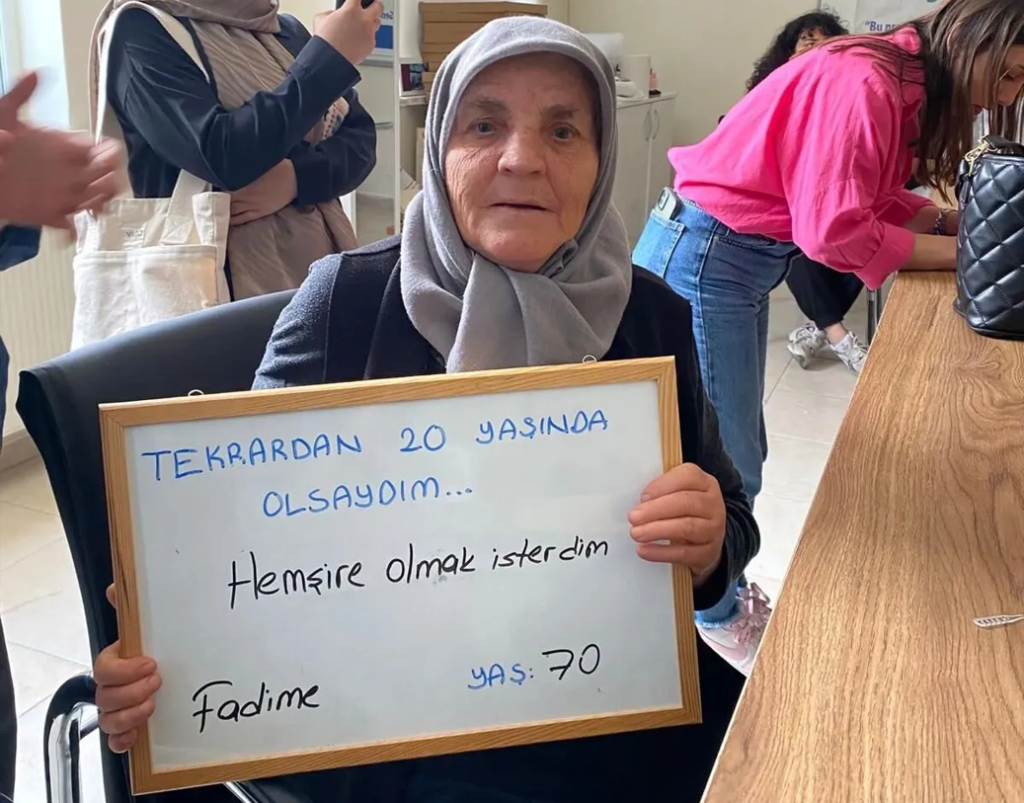 TEKRARDAN 20 YAŞINDA
OLSAYDIM...
Hemşire olmak isterdim
Fadime
YAŞ: 70
"Bu pr